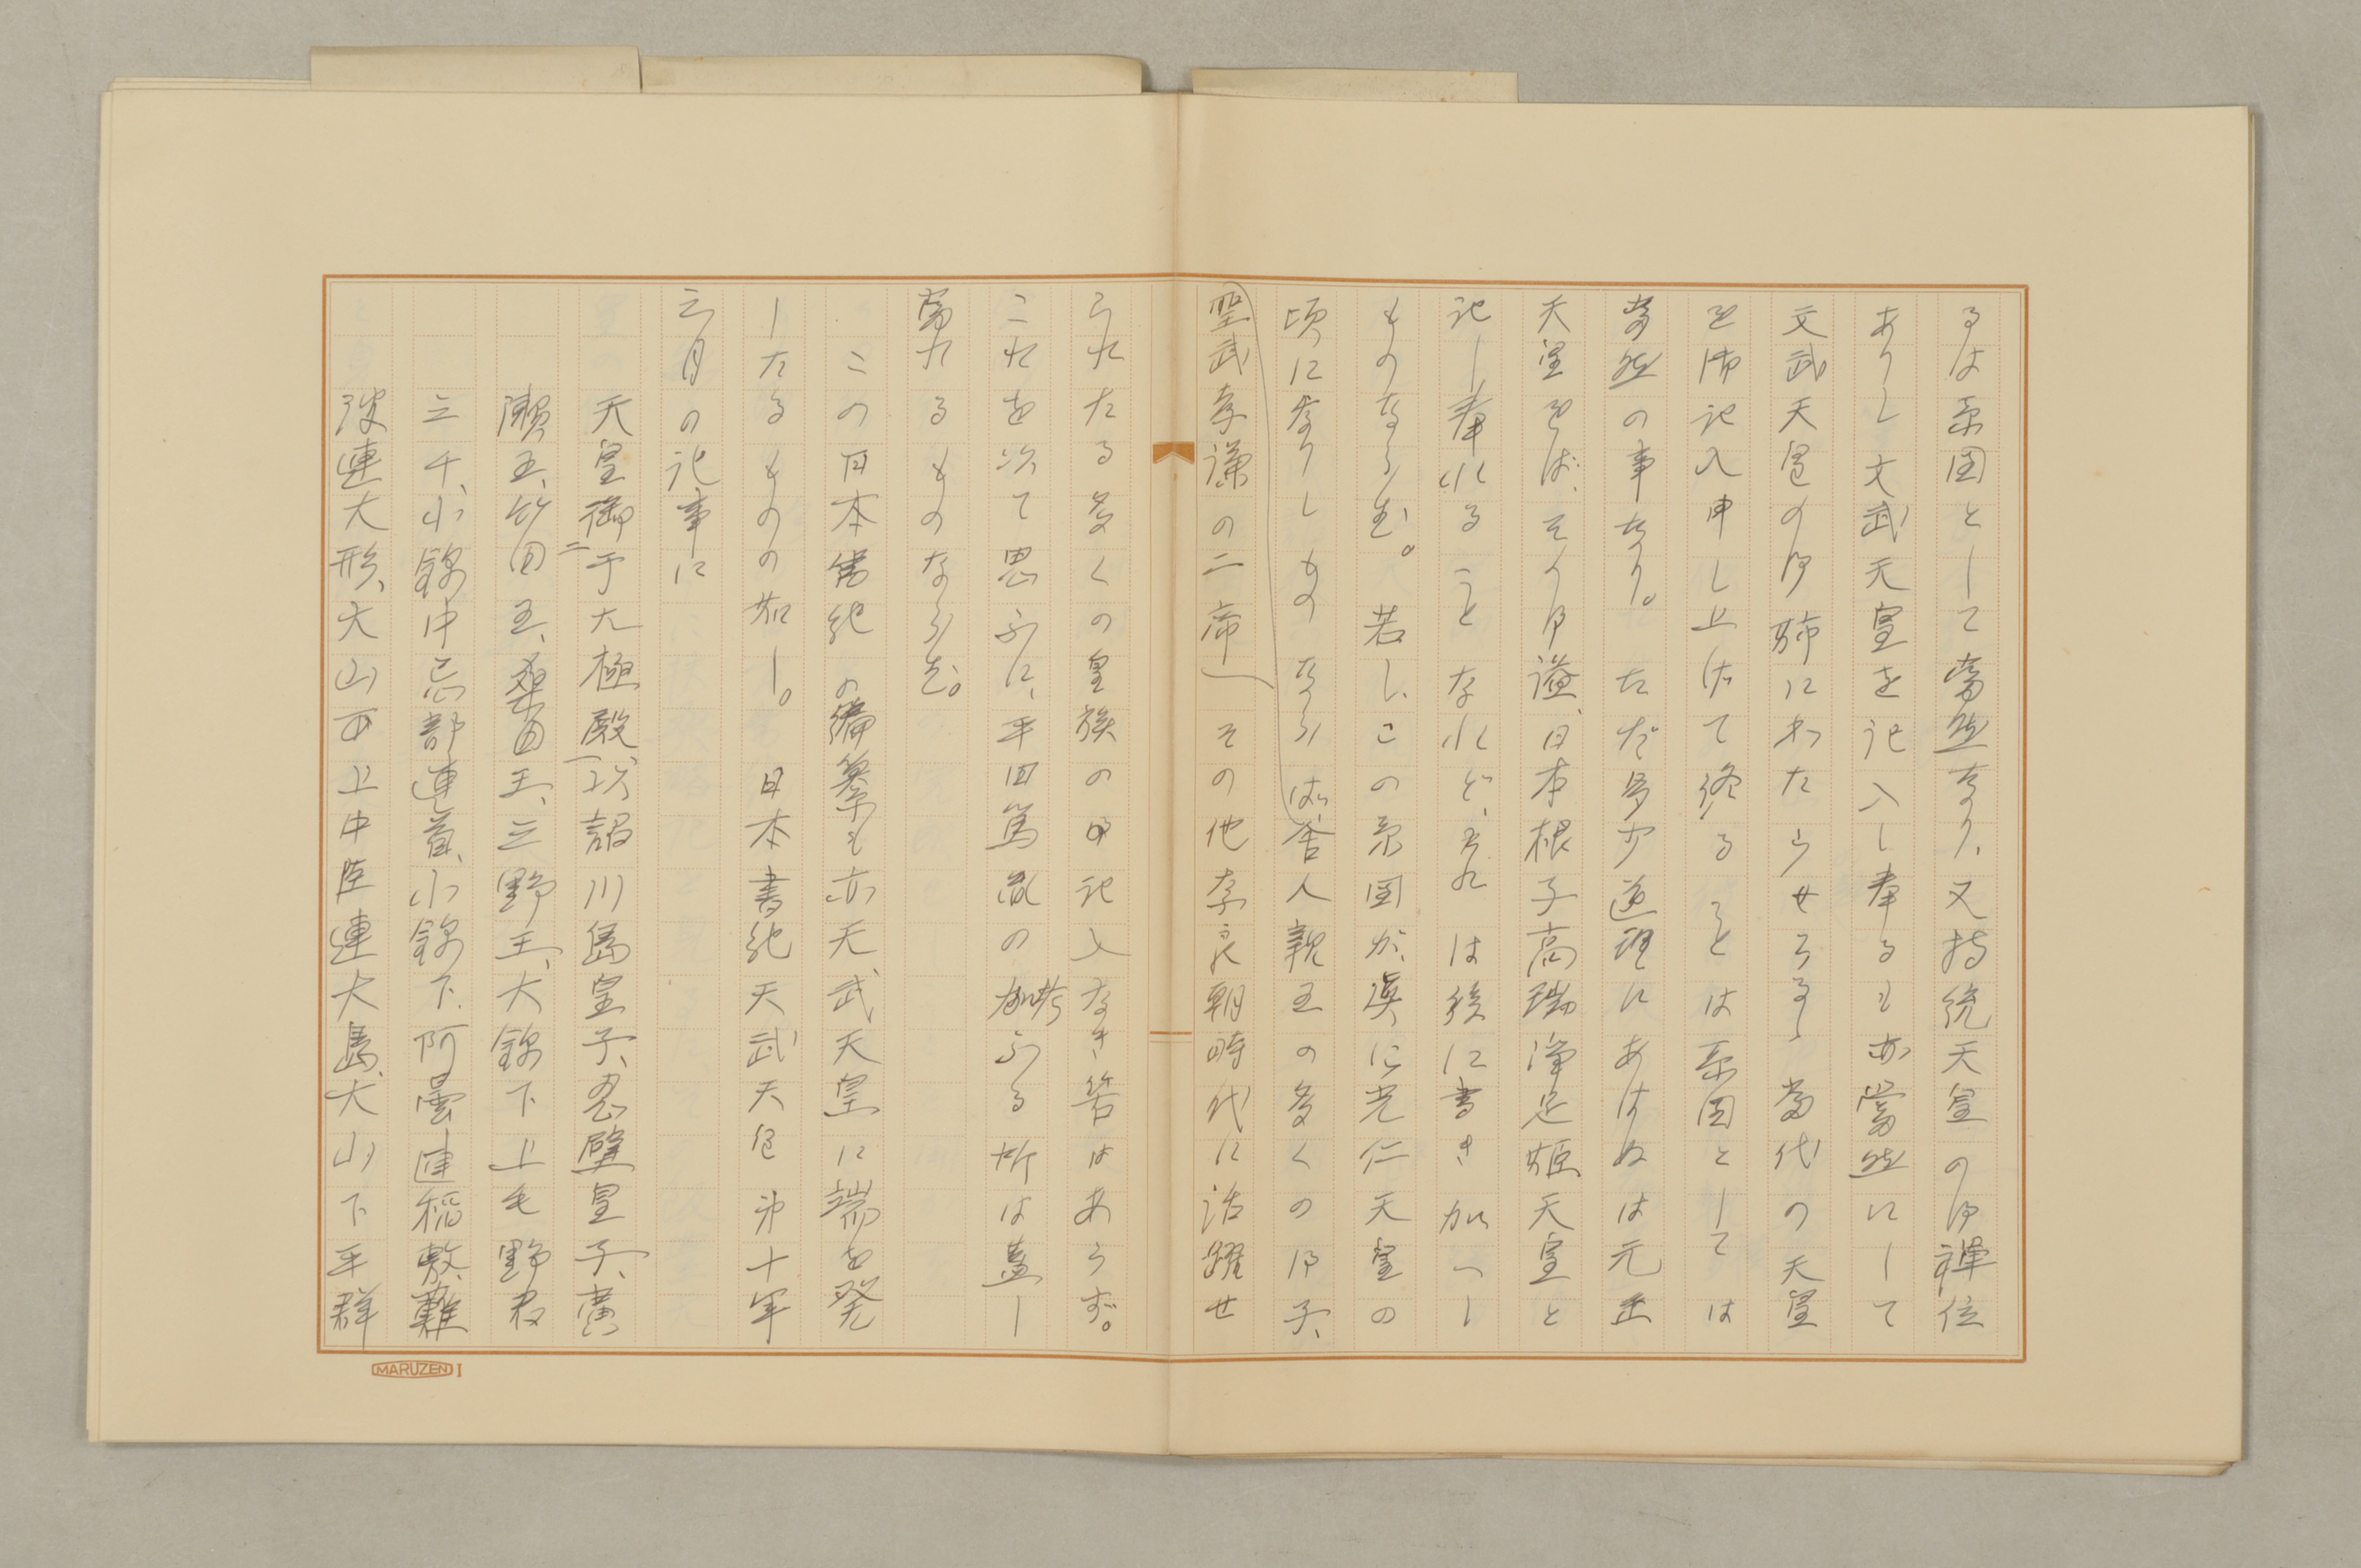 るは系図として當然なり、又持統天皇の御禅位
ありし文武天皇を記入し奉るも亦當然にして
文武天皇の御姉にわたらせらるゝ當代の天皇
を御記入申し上げて終ることは系図としては
當然の事なり。ただ多少道理にあはぬは元正
天皇をば、その御諡、日本根子高瑞浄足姫天皇と
記し奉れることなれど、それは後に書き加へし
ものならむ。若し、この系図が真に光仁天皇の
頃になりしものならば舎人親王の多くの御子、
聖武孝謙の二帝その他奈良朝時代に活躍せ
られたる多くの皇族の御記入なき筈はあらず。
これを以て思ふに、平田篤胤の考ふる所は蓋し
當れるものならむ。
この日本書紀の編纂も亦天武天皇に端を発
したるものの如し。日本書紀天武天皇第十年
三月の記事に
天皇御二于大極殿一以詔川島皇子、忍壁皇子、廣
瀬王、竹田王、桑田王、三野王、大錦下上毛野君
三千、小錦中忌部連首、小錦下阿曇連稲敷、難
波連大形、大山上中臣連大島、大山下平群
MARUZEN I